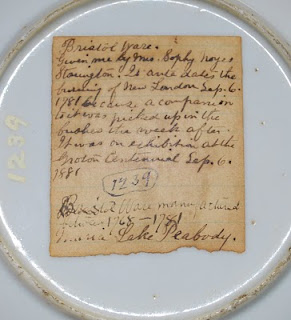 Bristol Ware.
Given me by Mrs. Sophy Noyes
Stonington. It ante dates the
burning of New London Sep. 6.
1781 because a companion
to it was picked up in the
rubbish the week after.
It was on exhibition at the
Groton Centennial Sep. 6.
1881
1239
Bristol Ware manufactured
between 1768-1781
Lake Peabody.
1239